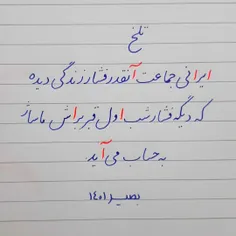 تلخ
ایرانی جماعت آنقدر فشار زندگی دیده
که دیگه فشار شب اول قبر براش ماساژ
به حساب می آید
بصیر ۱۴۰۱